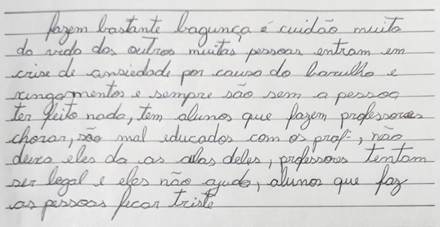 fazem bastante bagunça é cuidão muito
da vida dos outros muitas pessoas entram em
crise de ansiedade por causa do barulho e
xingamentos e sempre são sem a pessoa
ter feito nada, tem alunos que fazem professores
chorar, são mal educados com os prof., não
deixa eles da as aulas deles, professores tentam
ser legal e eles não ajuda, alunos que faz
as pessoas ficar triste